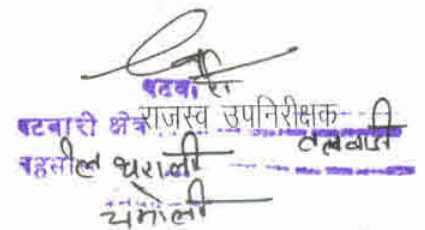 पटवारी
राजस्व उपनिरीक्षक
पटवारी क्षेत्र तलवाड़ी
तहसील थराली
चमोली